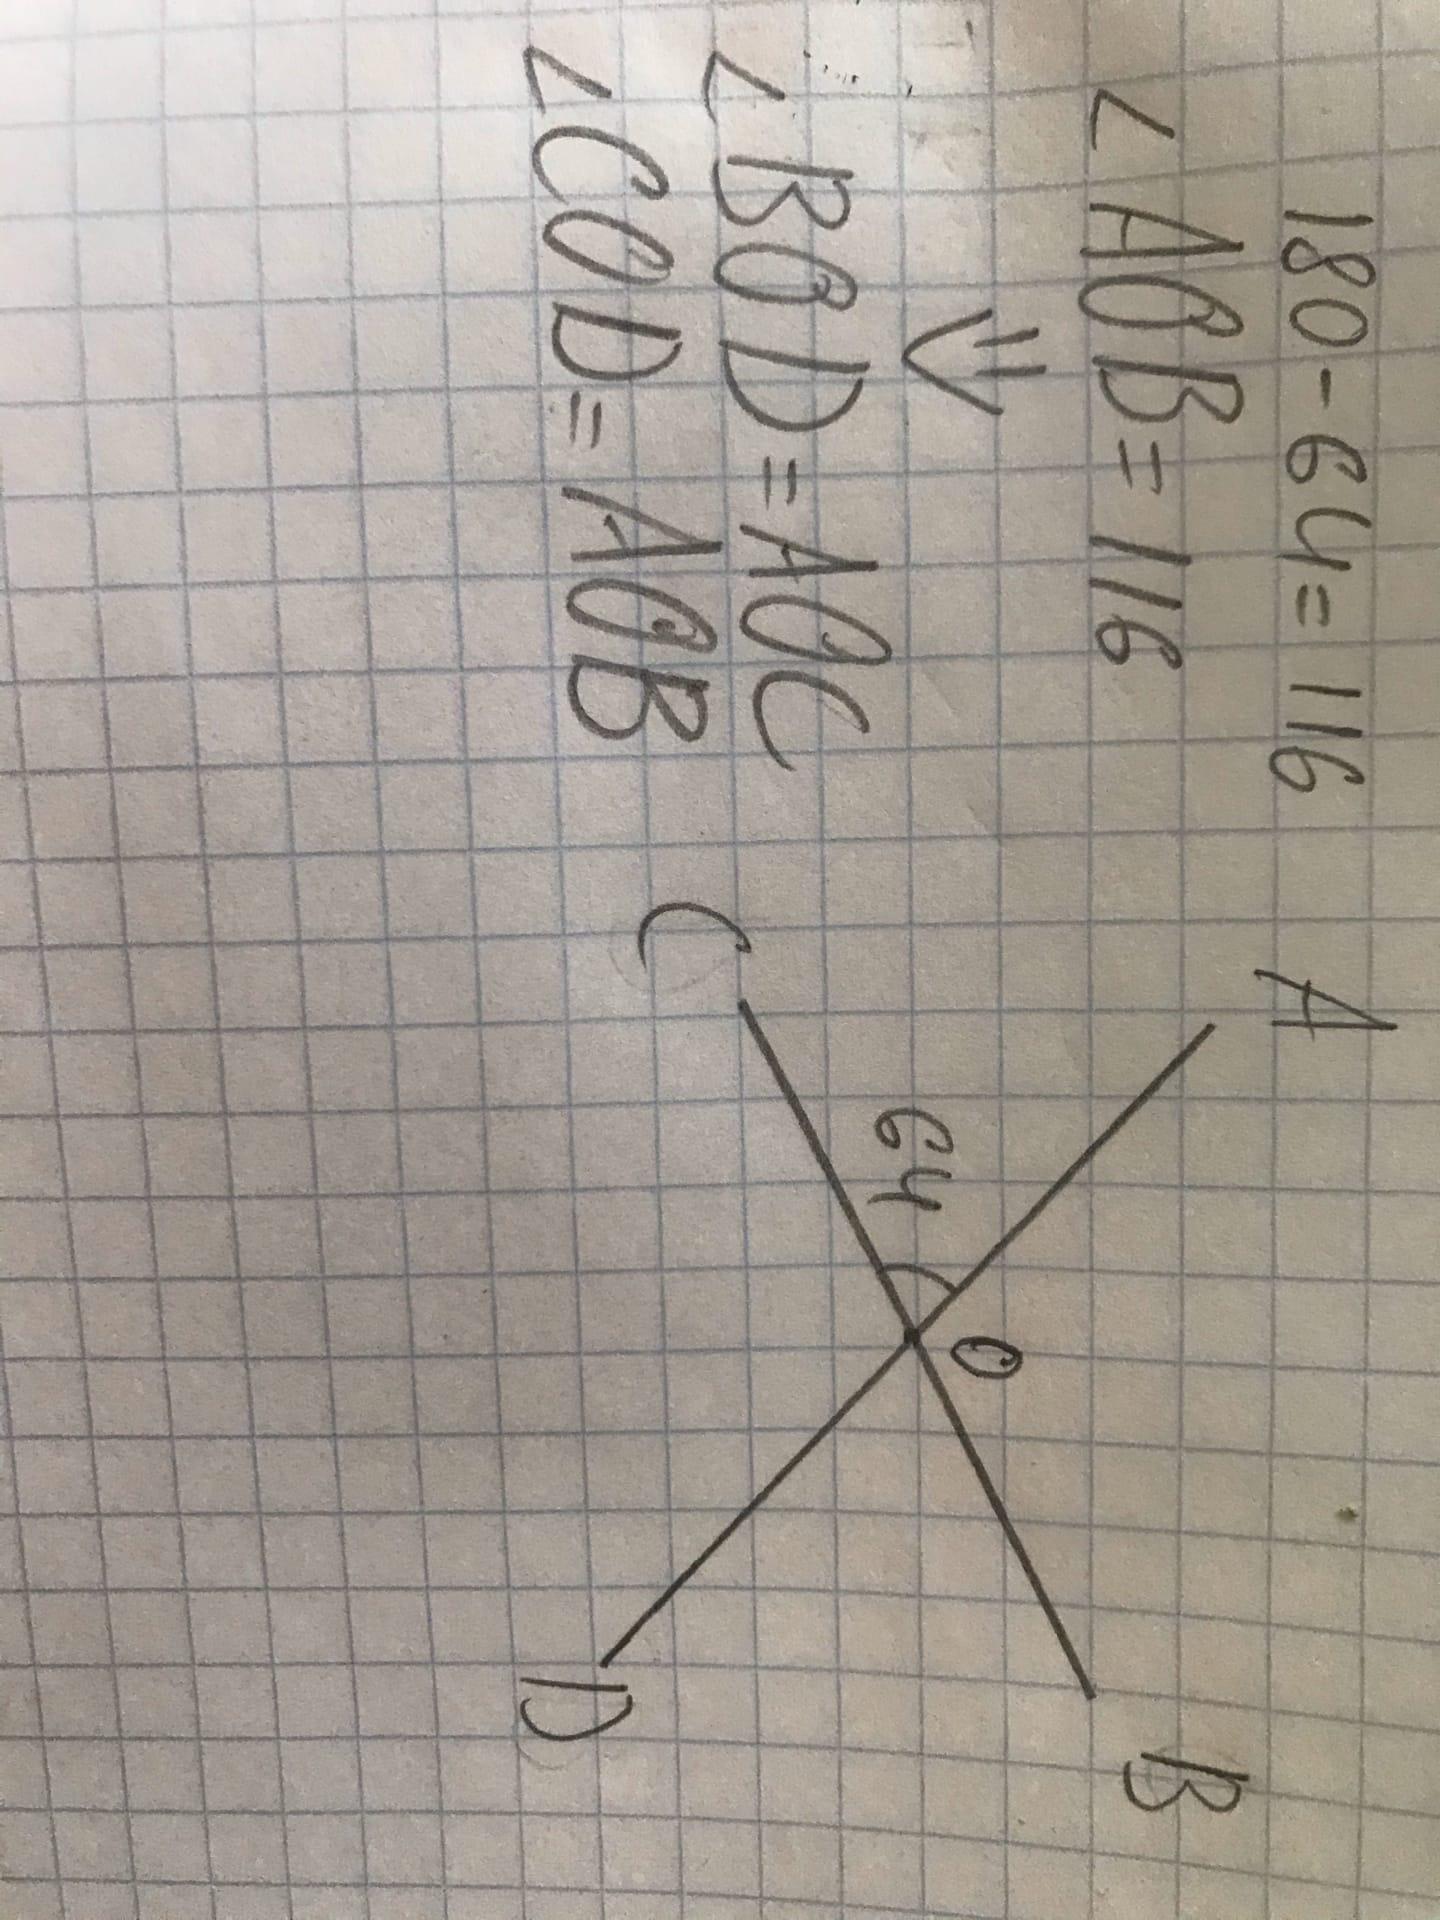 180-64=116
∠AOB=116
⇓
∠BOD=AOC
∠COD=AOB
A
B
O
64
C
D